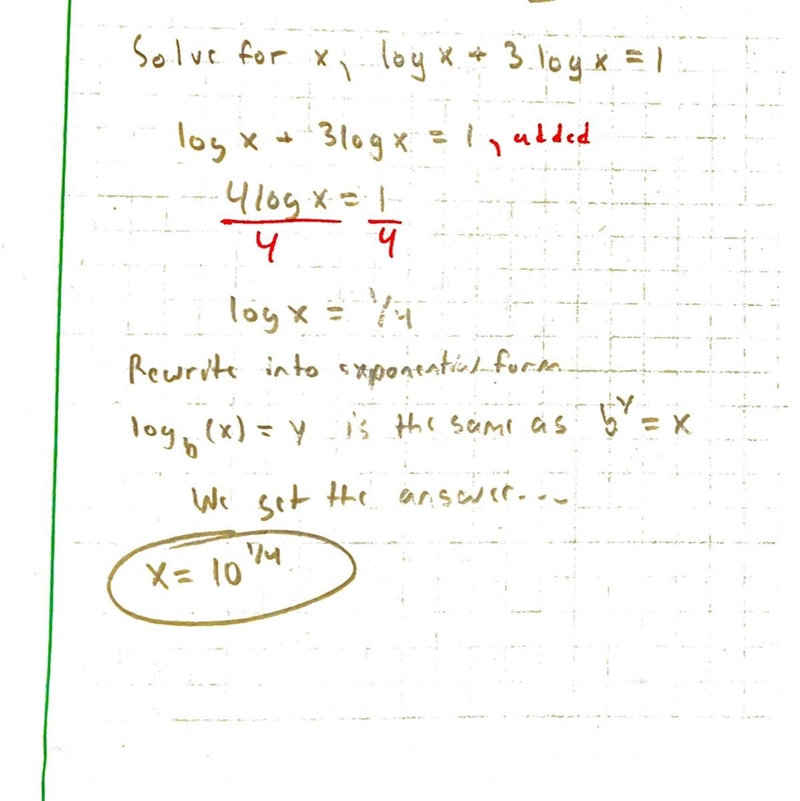 Solve for x, log x + 3 log x = 1
log x + 3 log x = 1, added
4 log x = 1
4 4
log x = 1/4
Rewrite into exponential form
log_b (x) = y is the same as b^y = x
We get the answer...
x = 10^1/4